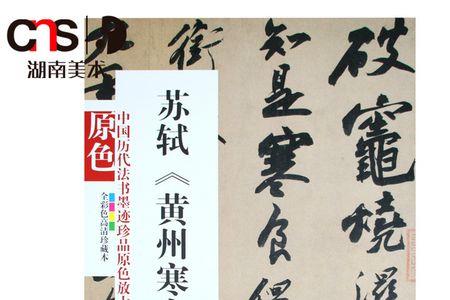 cns
湖南美术
原色
中国历代法书墨迹珍品原色放大
全彩色高清珍藏本
苏轼《黄州寒食
破竈燒濕
知是寒食但
銜